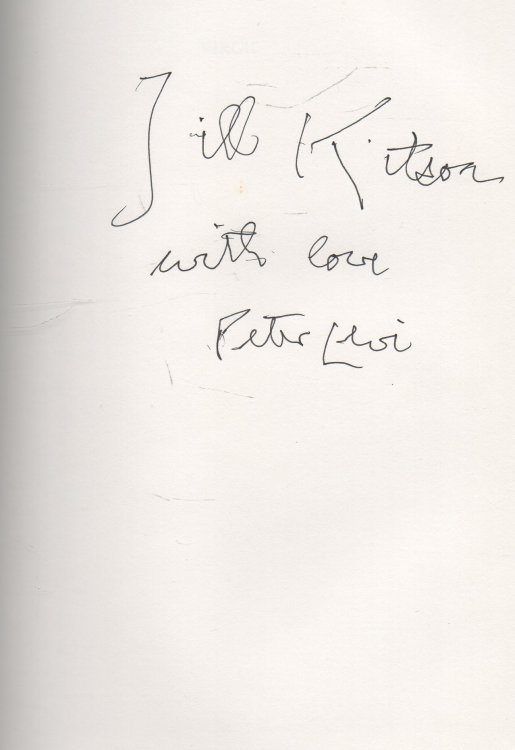 Jill Kitson
with love
Peter Levi